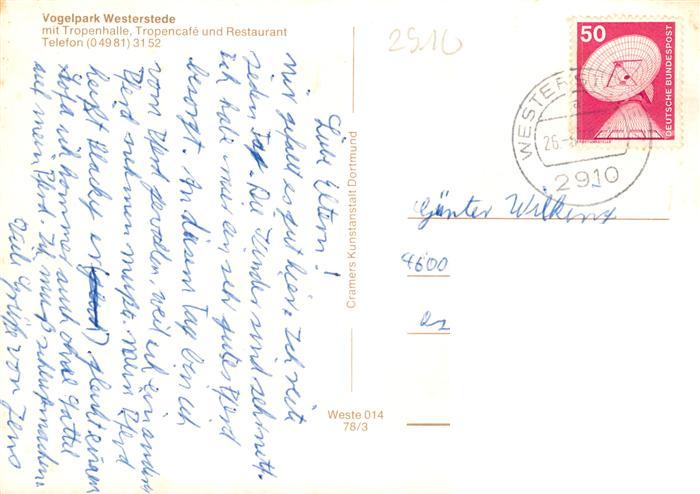 Vogelpark Westerstede
mit Tropenhalle, Tropencafé und Restaurant
Telefon (0 49 81) 31 52
Liebe Eltern!
mir gefällt es gut hier. Ich reite
jeden Tag. Die Kinder sind sehr nett.
Ich habe mir ein sehr gutes Pferd
besorgt. An diesem Tag bin ich
vom Pferd gefallen, weil ich ein anderes
Pferd nehmen mußte. Mein Pferd
heißt Blacky
Sofa ich komme auch ohne Sattel
auf mein Pferd. Ich muß schluß machen.
Viele Grüße von Jens
Cramers Kunstanstalt Dortmund
Weste 014
78/3
2910
50
DEUTSCHE BUNDESPOST
WESTERSTEDE
26.
2910
Günter Wilkens
4600